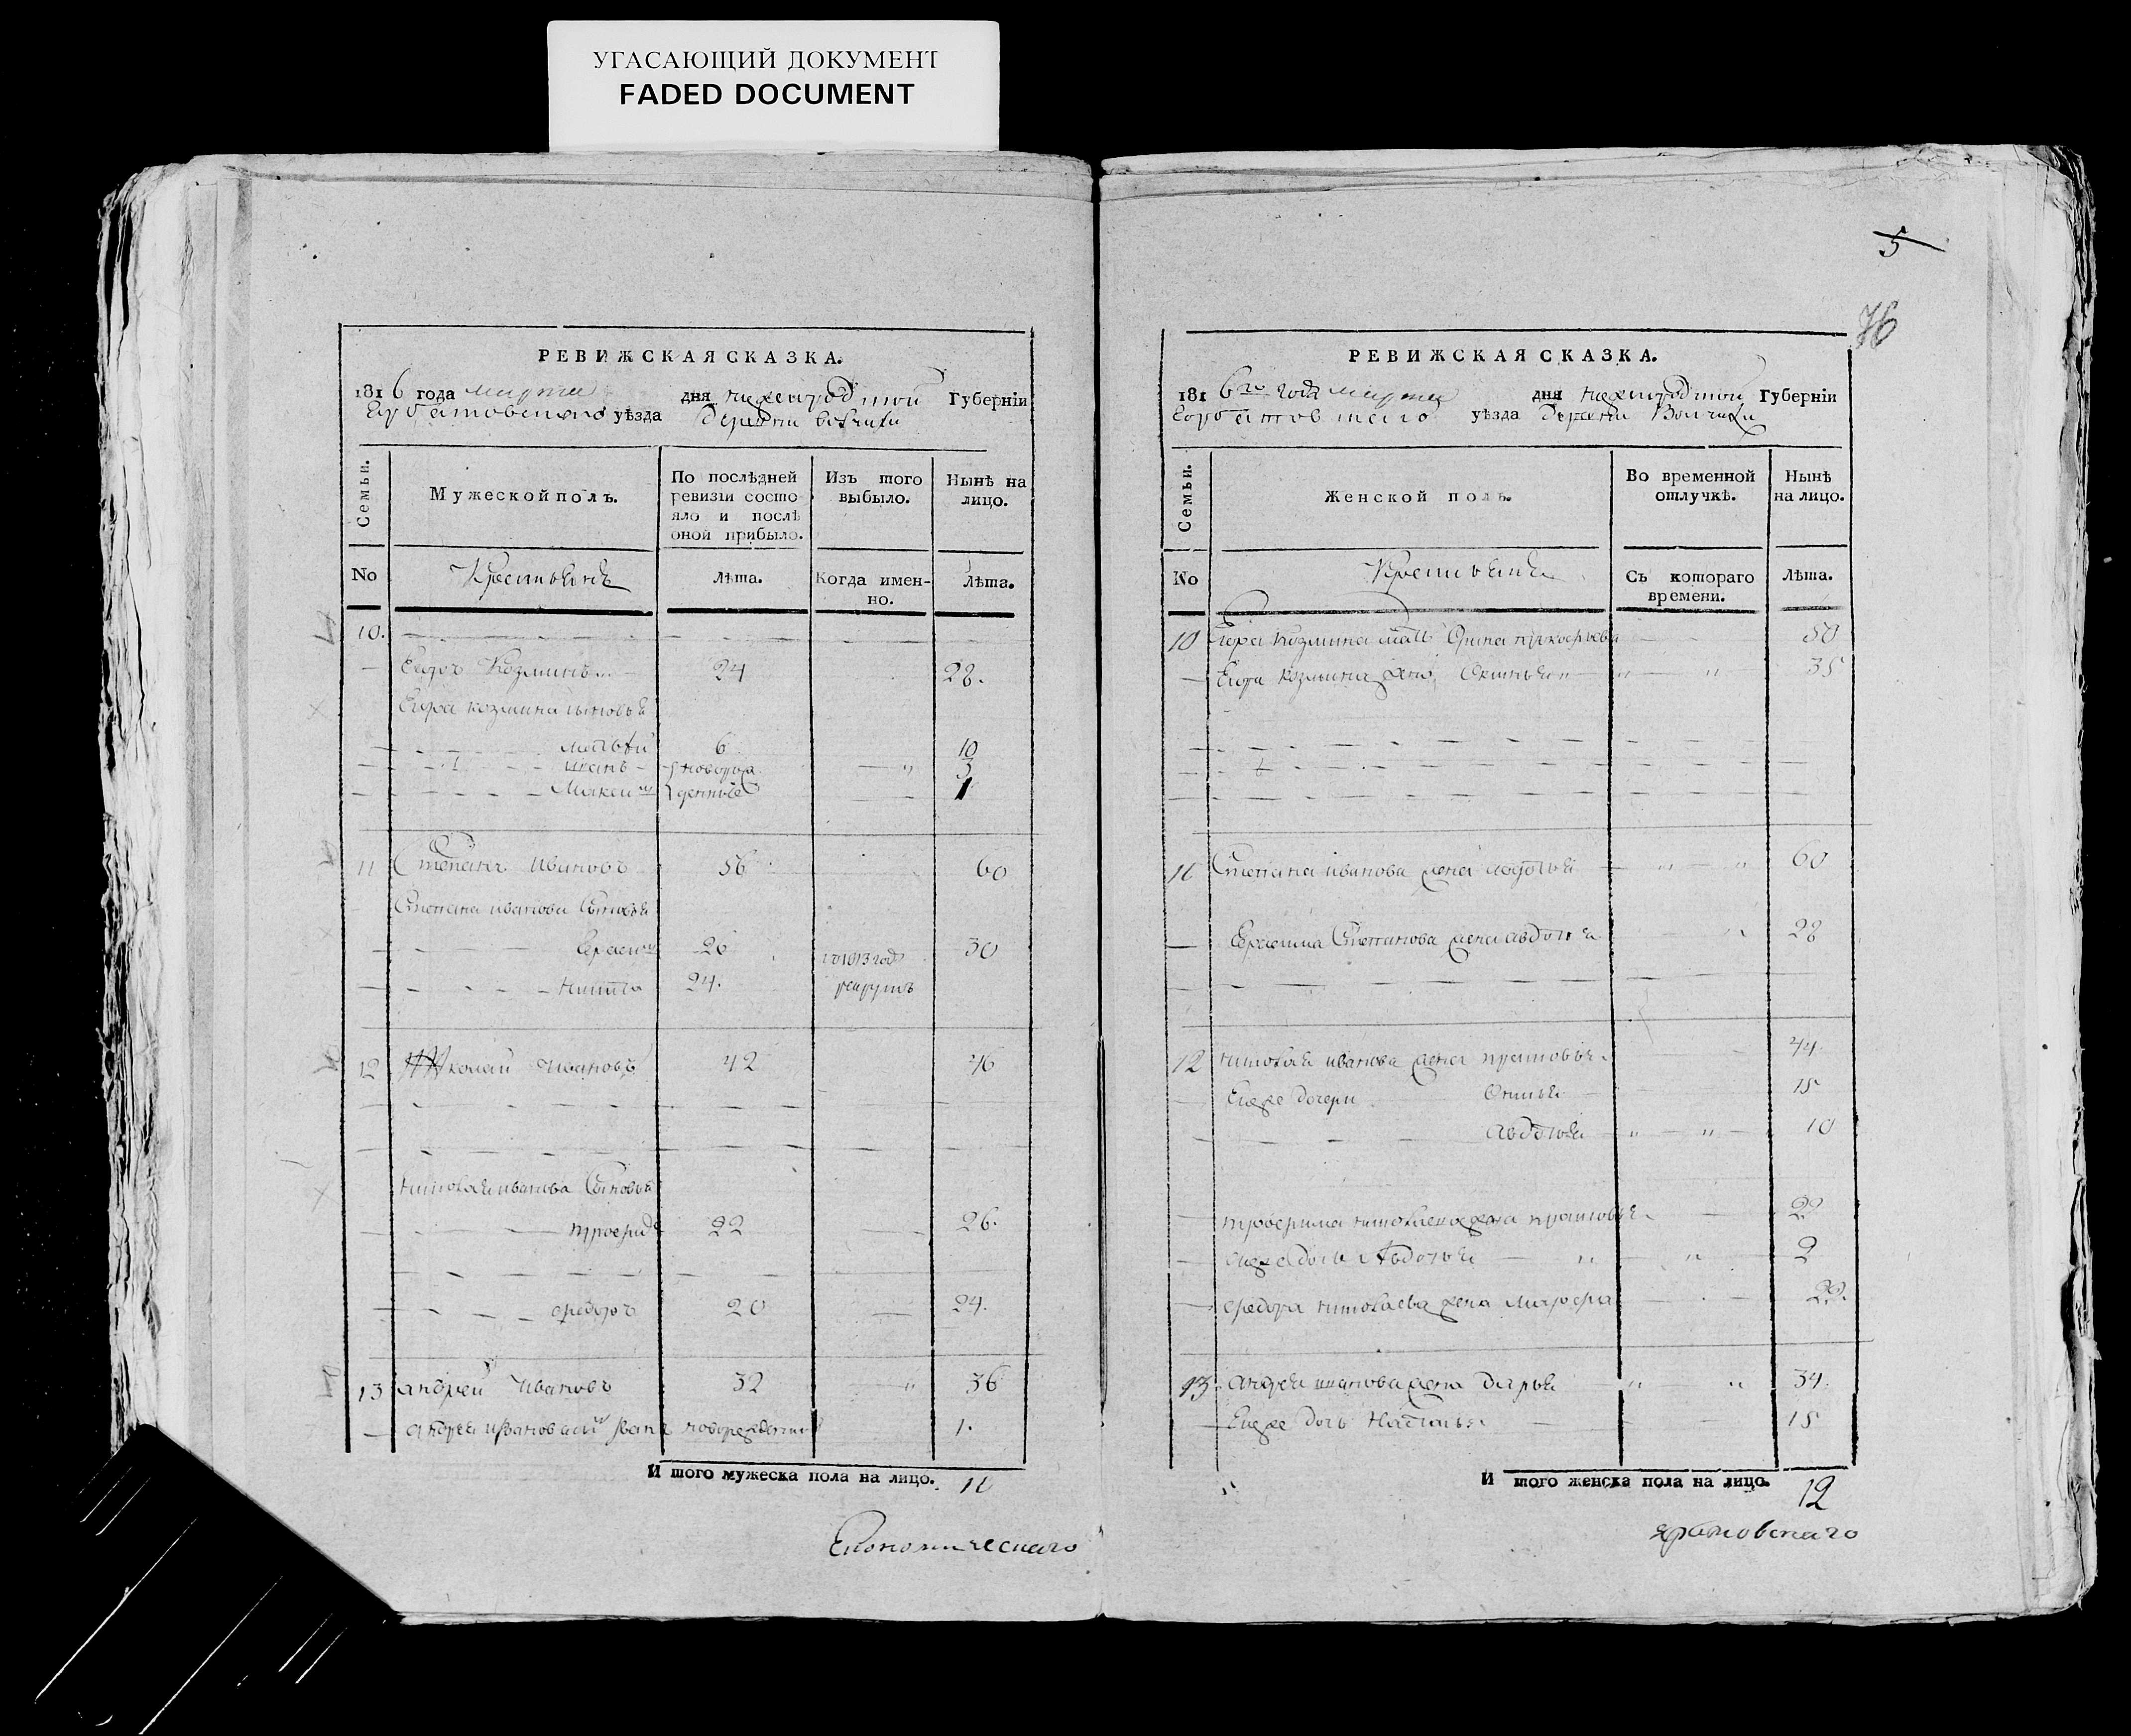 УГАСАЮЩИЙ ДОКУМЕНТ
FADED DOCUMENT
РЕВИЖСКАЯ СКАЗКА.
1816 года марта дня нижегородской Губерніи
уѣзда деревни
Семьи.
Мужеской полъ.
По послѣдней ревизіи состояло и послѣ оной прибыло.
Изъ того выбыло.
Нынѣ на лицо.
No
Крестьянъ
лѣта.
Когда именно.
лѣта.
10.
Егоръ Козминъ 24 28.
Егора козмина сыновья
матвѣй 6 10
иванъ новорож 3
Максимъ денные 1
11 Степанъ Ивановъ 56 60
Степана иванова Сыновья
Герасимъ 26 30
никита 24. 1813 году рекрутъ
12 Николай Ивановъ 42 46
николая иванова Сыновья
22 26.
федоръ 20 24.
13 андрей Ивановъ 32 36
андрея иванова новорожденный 1.
Итого мужеска пола на лицо. 11
Економическаго
5
76
РЕВИЖСКАЯ СКАЗКА.
1816го года марта дня нижегородской Губерніи
уѣзда деревни
Семьи.
Женской полъ.
Во временной отлучкѣ.
Нынѣ на лицо.
No
Крестьянъ
Съ котораго времени.
лѣта.
10 Егора козмина мать 50
Егора козмина жена 35
11 Степана иванова жена 60
Герасима Степанова жена авдотья 28
12 николая иванова жена прасковья 44
Егоже дочери 15
авдотья 10
николаева жена прасковья 22
егоже дочь Авдотья 2
федора николаева жена марфа 22.
13 андрея иванова жена дарья 34.
Егоже дочь Наталья 15
Итого женска пола на лицо. 12